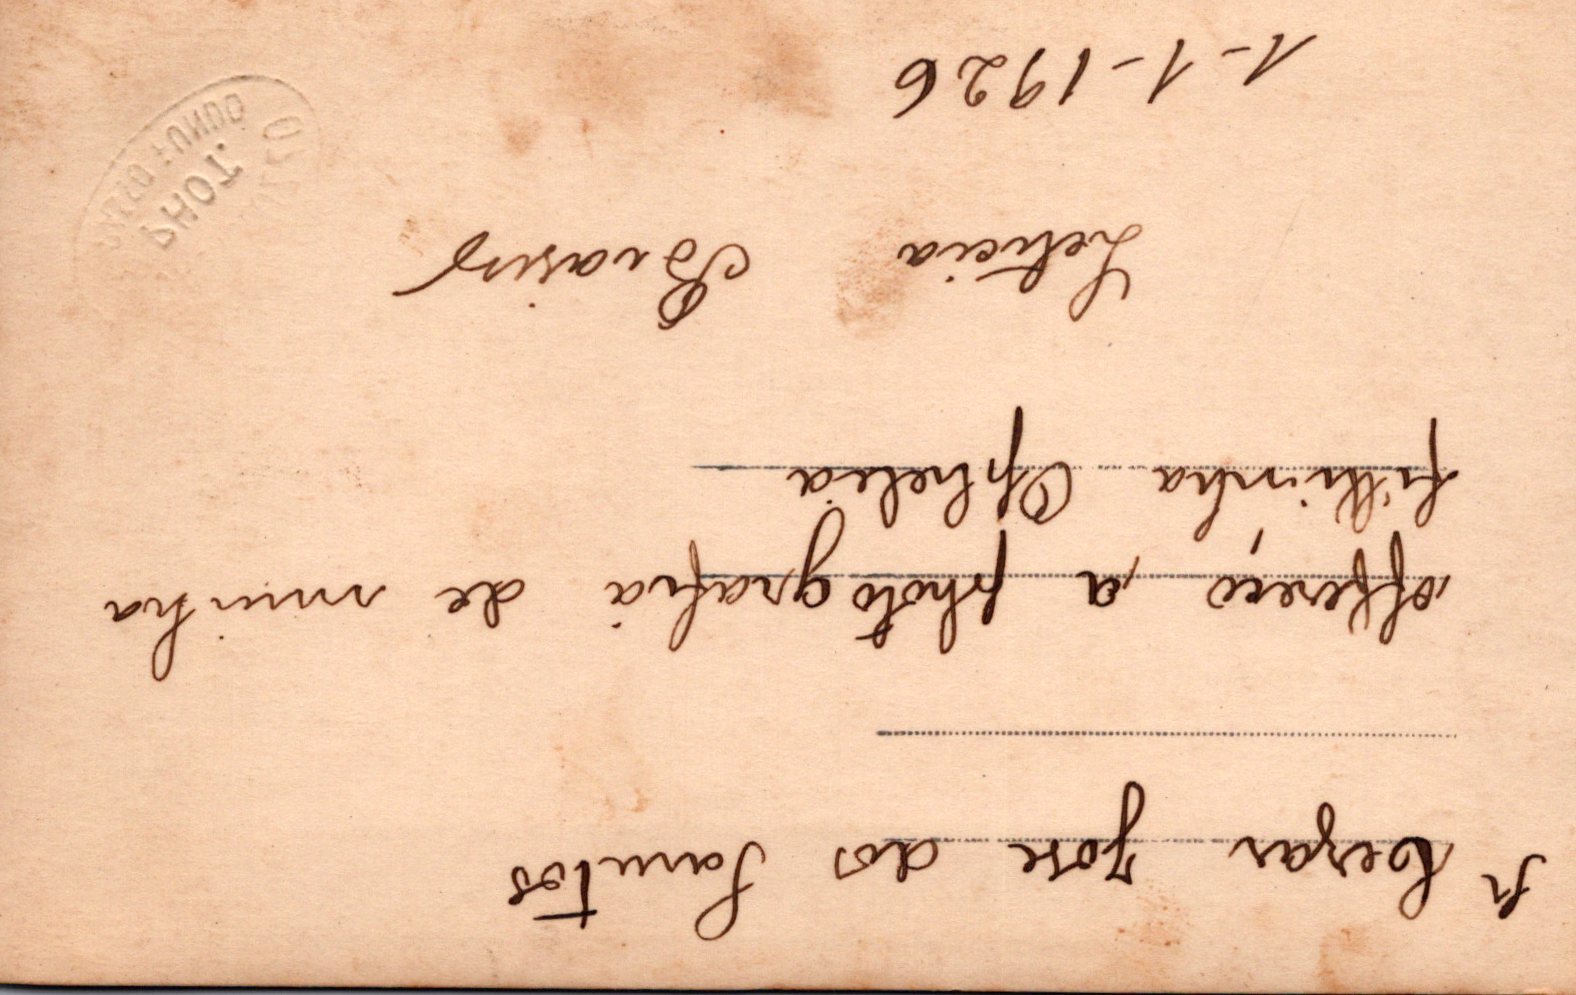 Sr Cezar Jose dos Santos
offereço a photografia de minha
filhinha Ophelia
Leticia
1-1-1926
PHOT.